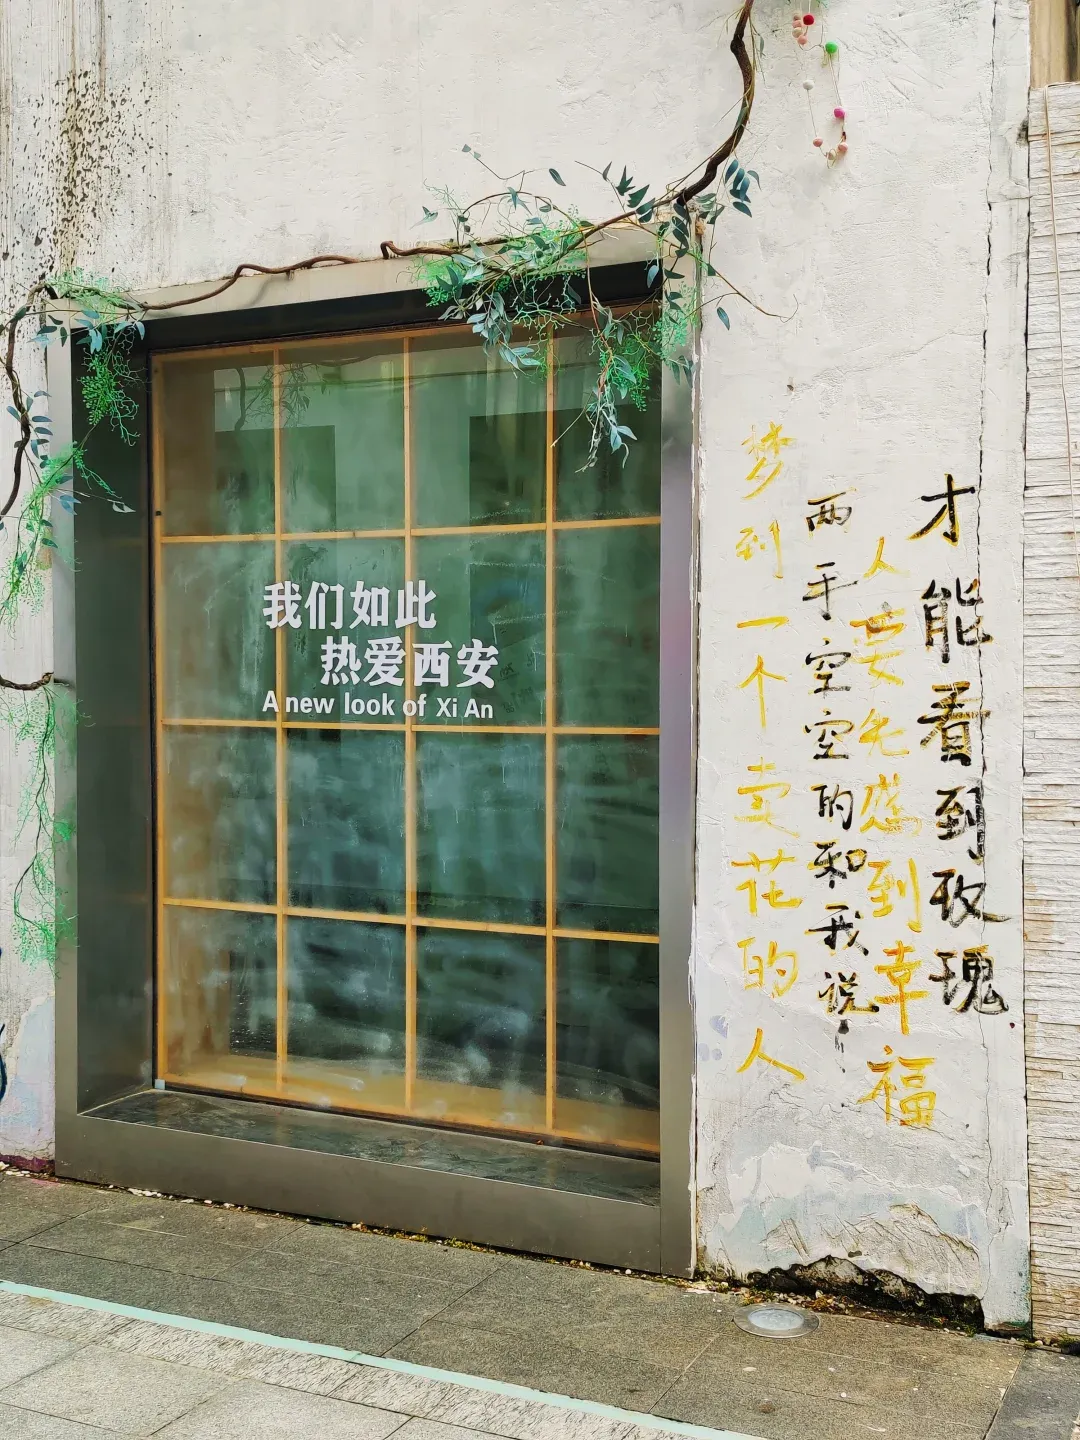 我们如此
热爱西安
A new look of Xi An
梦到一个卖花的人
两手空空的和我说
人要先感到幸福
才能看到玫瑰